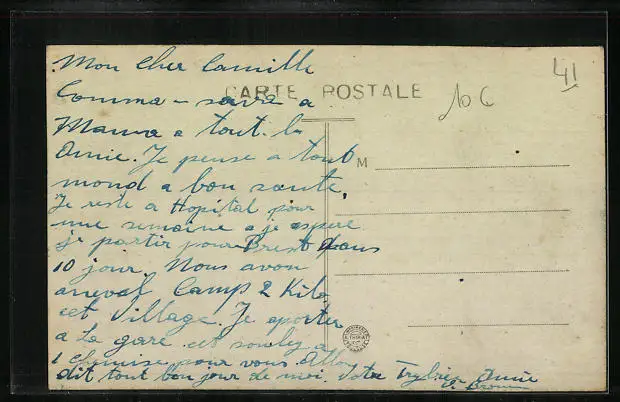 Mon cher Camille
CARTE POSTALE
10 C
41
Comma - sava a
Mama a tout la
Amie. Je pense a tout
M
mond a bon sante.
Je reste a Hopital pour
une semaine a je espere
je partir pour Brest dans
10 jour. Nous avon
arreval Camp 2 Kilo
cet village. Je
a La gare. cet
1 chemise pour vous.
dit tout bon jour de moi. Votre Amie